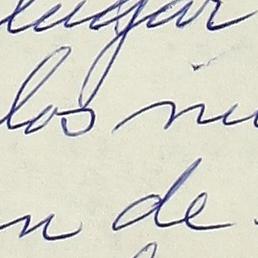 lugar
los
n de